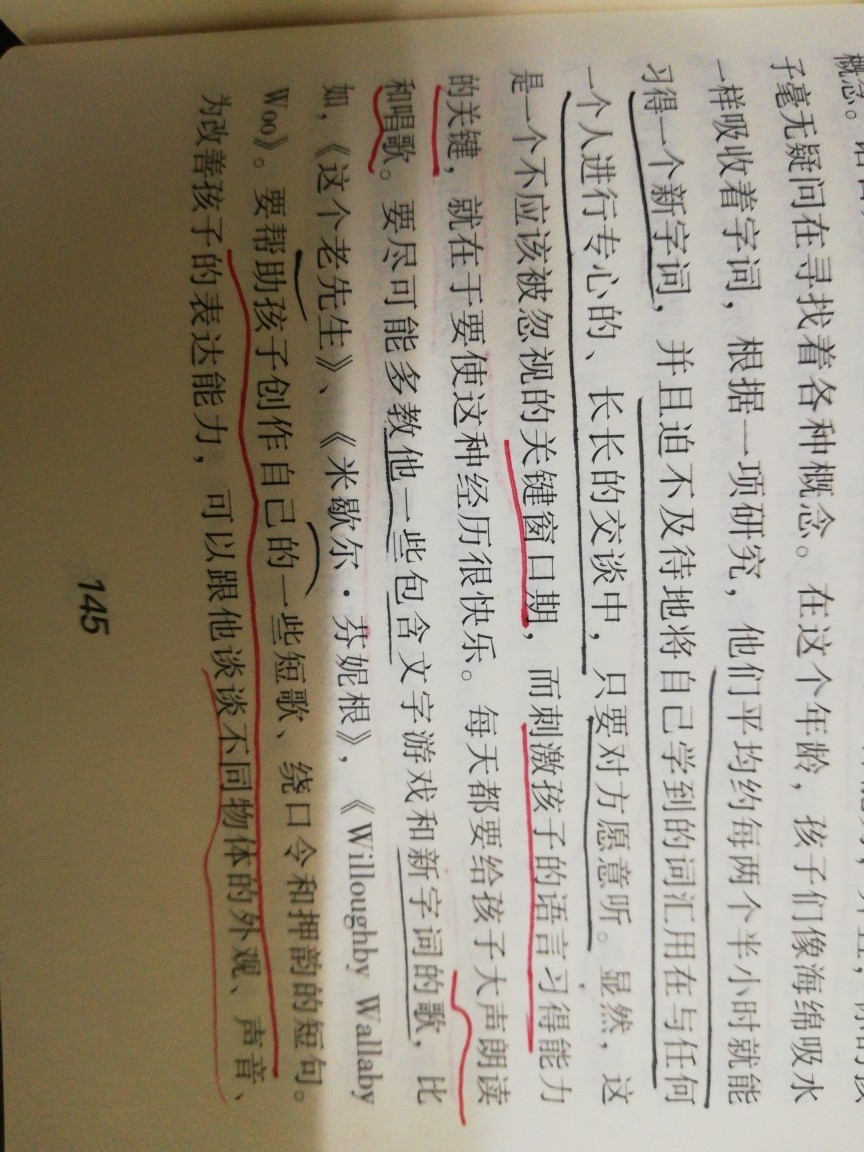 概念。
子毫无疑问在寻找着各种概念。在这个年龄，孩子们像海绵吸水
一样吸收着字词，根据一项研究，他们平均约每两个半小时就能
习得一个新字词，并且迫不及待地将自己学到的词汇用在与任何
一个人进行专心的、长长的交谈中，只要对方愿意听。显然，这
是一个不应该被忽视的关键窗口期，而刺激孩子的语言习得能力
的关键，就在于要使这种经历很快乐。每天都要给孩子大声朗读
和唱歌。要尽可能多教他一些包含文字游戏和新字词的歌，比
如，《这个老先生》、《米歇尔·芬妮根》，《Willoughby Wallaby
Woo》。要帮助孩子创作自己的一些短歌、绕口令和押韵的短句。
为改善孩子的表达能力，可以跟他谈谈不同物体的外观、声音、
145